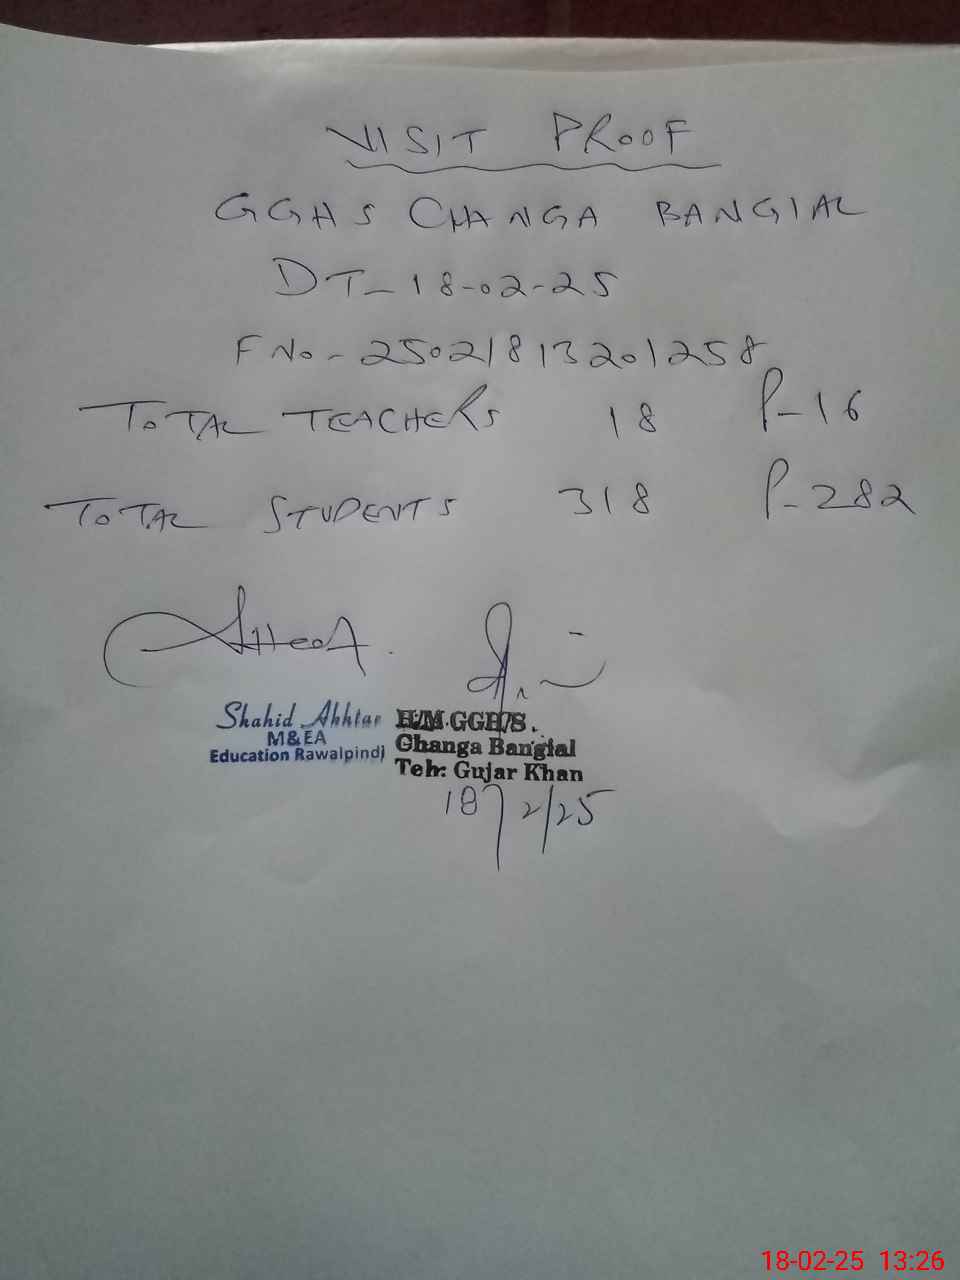 VISIT PROOF
GGHS CHANGA BANGIAL
DT-18-02-25
F No- 25021813201258
TOTAL TEACHERS 18 P-16
TOTAL STUDENTS 318 P-282
Shahid Akhtar
M&EA
Education Rawalpindi
H/M.GGH/S.
Changa Bangial
Teh: Gujar Khan
18/2/25
18-02-25 13:26